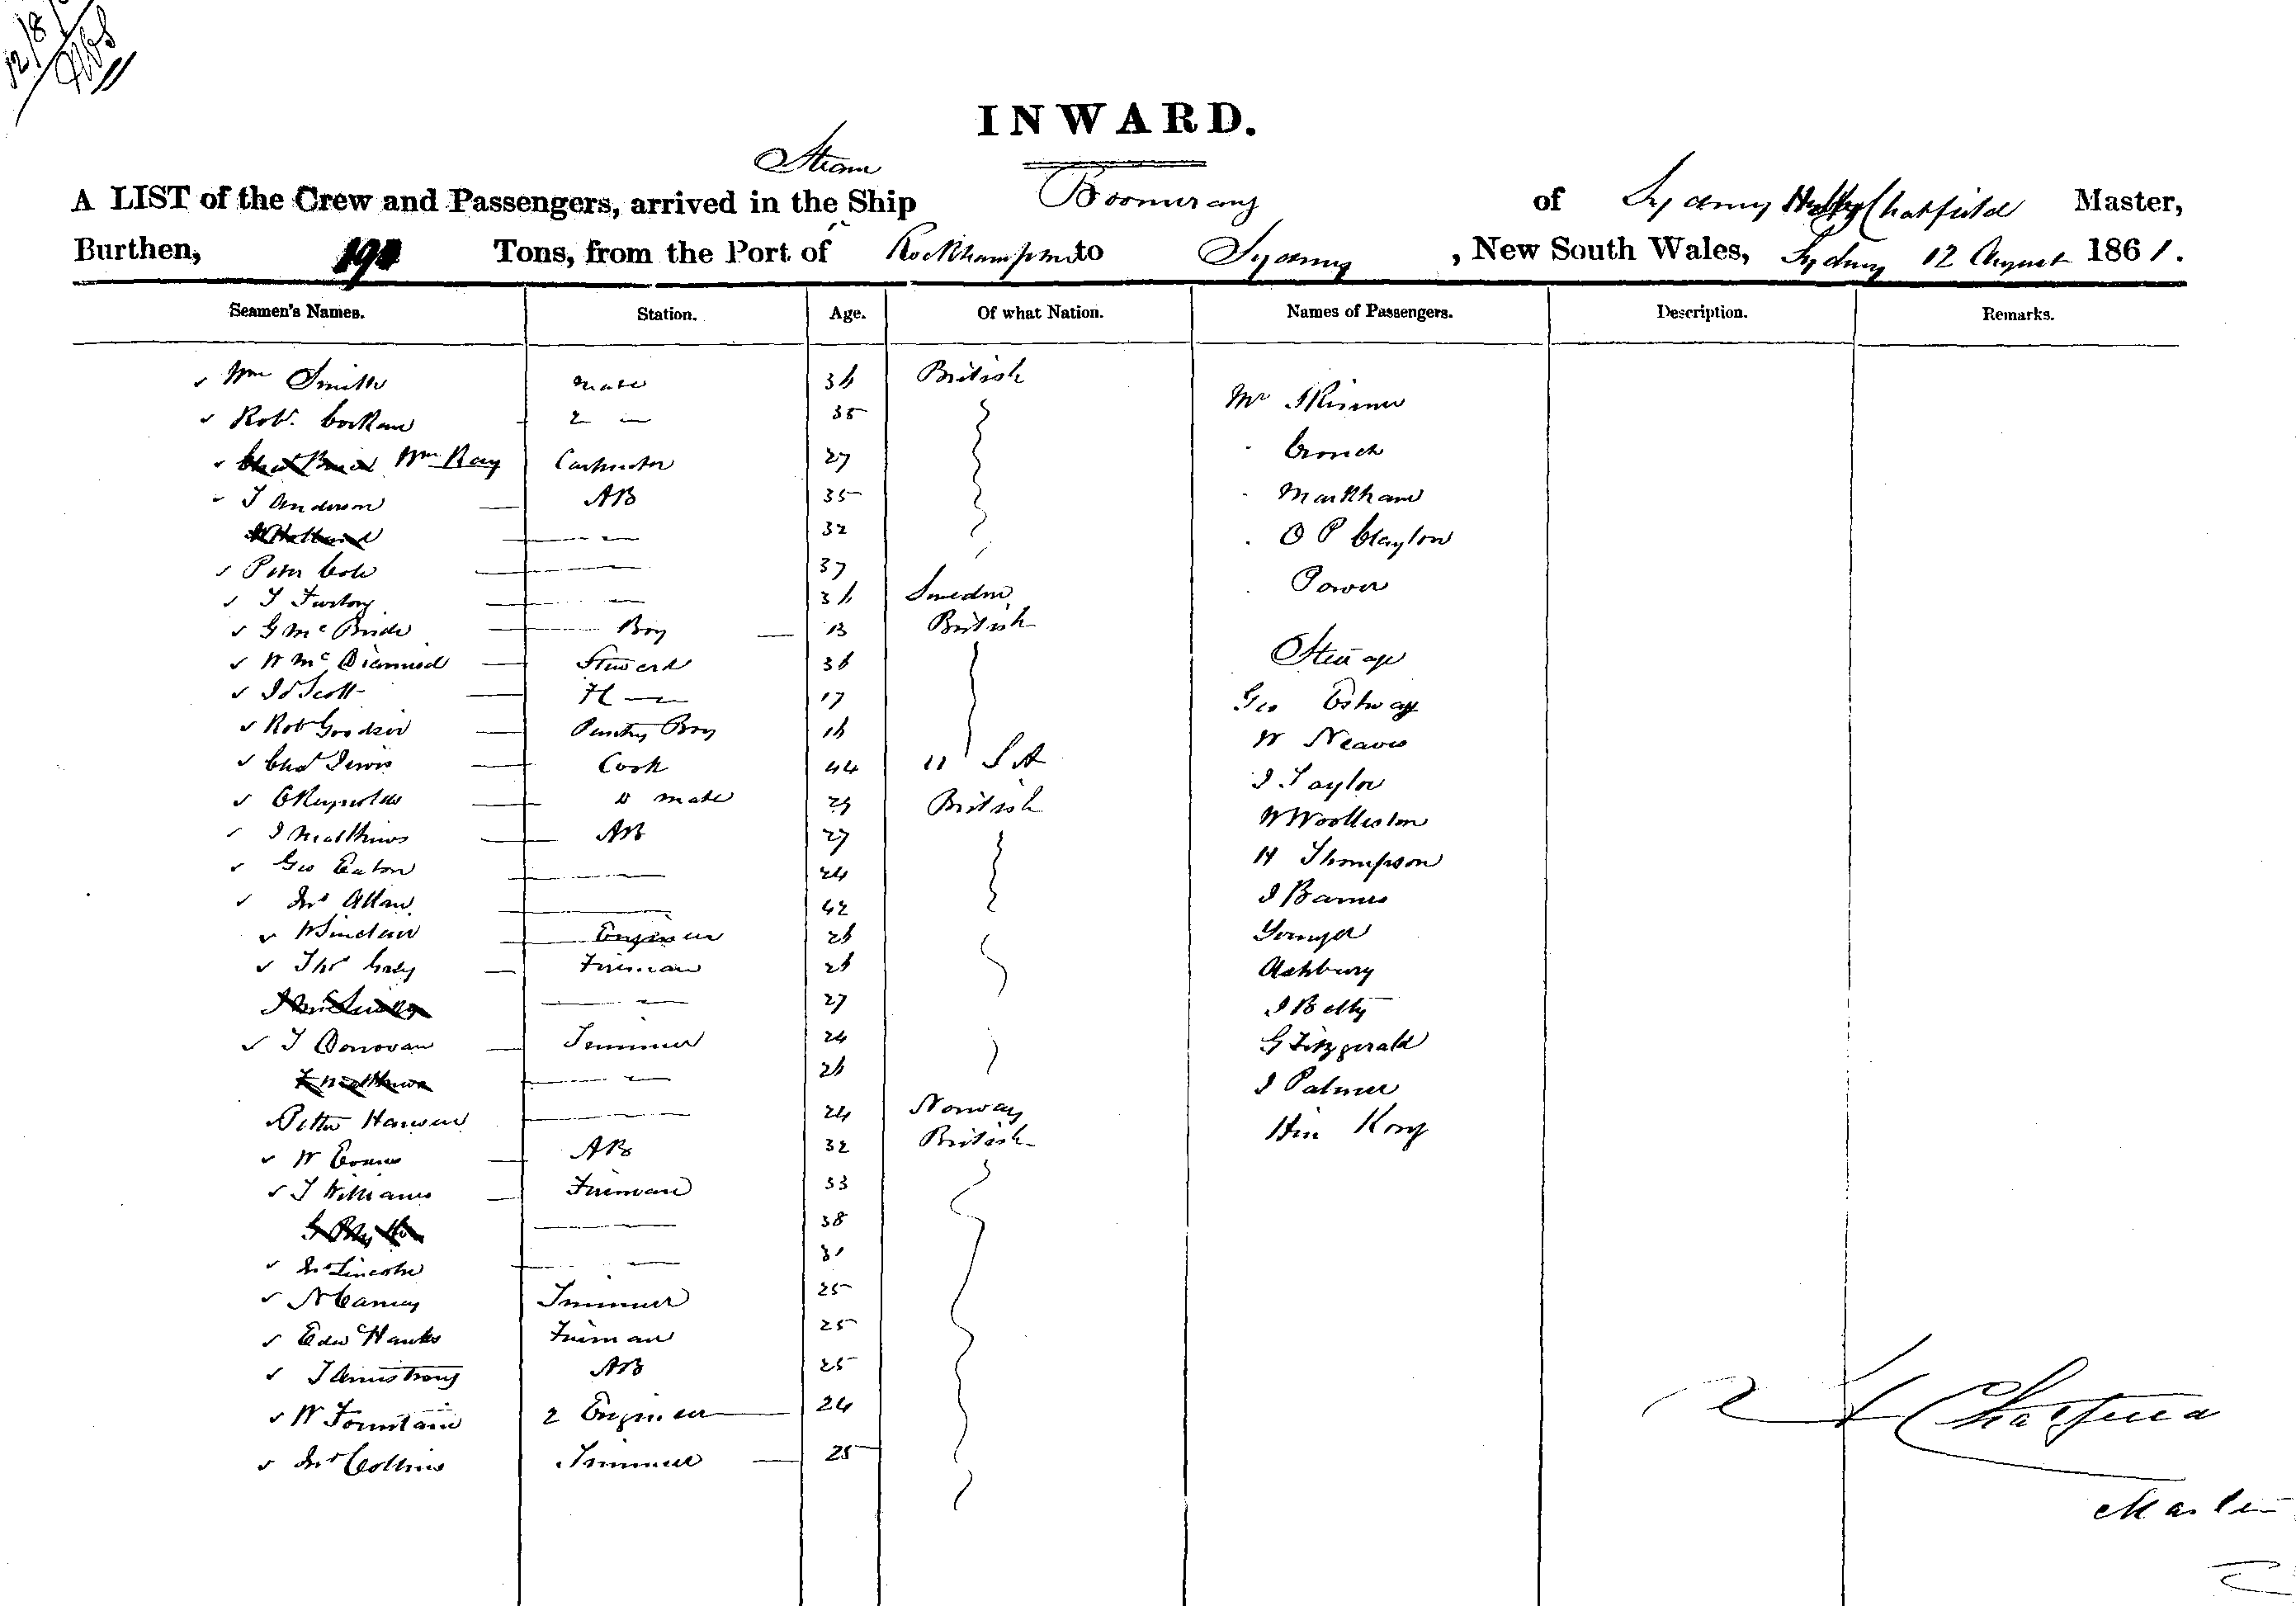 12/8/
INWARD.
Steam
A LIST of the Crew and Passengers, arrived in the Ship Boomerang of Sydney Chatfield Master,
Burthen, Tons, from the Port of Rockhampton to Sydney , New South Wales, Sydney 12 August 1861.
Seamen's Names. Station. Age. Of what Nation. Names of Passengers. Description. Remarks.
Wm Smith mate 36 British
Mr Skinner
Robt. Cockran 2 — 35
" Crouch
Wm Ray Carpenter 27
T Anderson AB 35 " Markham
W Holland — 32 " O P Clayton
Peter Cole — 37
" Power
T Furlong — 36 Sweden
G McBride Boy 13 British
W McDiarmid Steward 36 Steerage
Js Scott 17
Geo Ostway
Robt Goodsir Pantry Boy 16
W Neaves
Chas Lewis Cook 44 U S A
J Taylor
C Reynolds " mate 29 British
W Woolleston
J Matthews AB 27
H Thompson
Geo Eaton — 24
J Barnes
Jno Allan — 42
W Sinclair Engineer 26 Younger
Thos Fireman 26 Ashbury
— 27 J Betty
T Donovan Trimmer 24 G Fitzgerald
T Matthews — 26
J Palmer
Petter Hansen — 24 Norway
Hin Kong
W Evans AB 32 British
T Williams Fireman 33
— 38
Jno Lincoln — 31
N Carney Trimmer 25
Edwd Hanks Fireman 25
T Armstrong AB 25
W Fountain 2 Engineer 24
Jno Collins Trimmer 25
Chatfield
Master